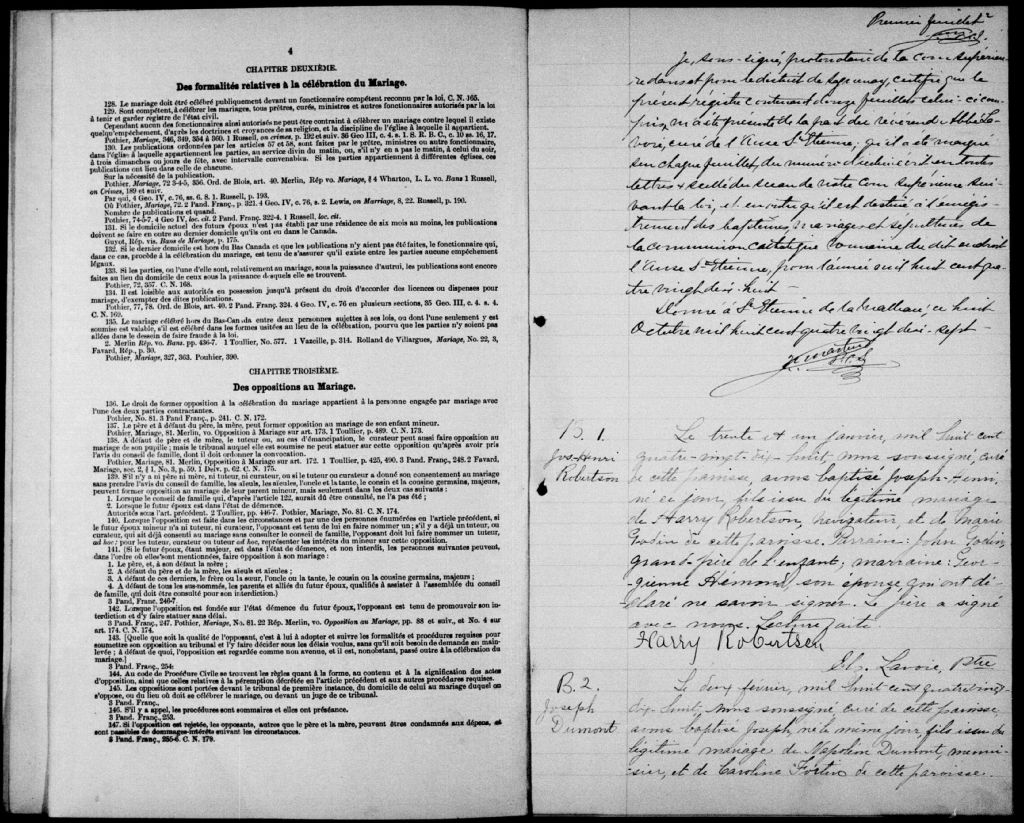 4
CHAPITRE DEUXIÈME.
Des formalités relatives à la célébration du Mariage.
128. Le mariage doit être célébré publiquement devant un fonctionnaire compétent reconnu par la loi, C. N. 165.
129. Sont compétent, à célébrer les mariages, tous prêtres, curés, ministres et autres fonctionnaires autorisés par la loi
à tenir et garder registre de l'état civil.
Cependant aucun des fonctionnaires ainsi autorisés ne peut être contraint à célébrer un mariage contre lequel il existe
quelqu'empêchement, d'après les doctrines et croyances de sa religion, et la discipline de l'église à laquelle il appartient.
Pothier, Mariage, 346, 349, 354 à 360. 1 Russell, on crimes, p. 192 et suiv. 36 Geo III, c. 4. s. 1. S. R. B. C., c. 10 ss. 16, 17.
130. Les publications ordonnées par les articles 57 et 58, sont faites par le prêtre, ministres ou autre fonctionnaire,
dans l'église à laquelle appartiennent les parties, au service divin du matin, ou, s'il n'y en a pas le matin, à celui du soir,
à trois dimanches ou jours de fête, avec intervalle convenables. Si les parties appartiennent à différentes églises, ces
publications ont lieu dans celle de chacune.
Sur la nécessité de la publication.
Pothier, Mariage, 72 3-4-5, 356. Ord. de Blois, art. 40. Merlin, Rép vo. Mariage, § 4 Wharton, L. L. vo. Bans 1 Russell,
on Crimes, 189 et suiv.
Par qui, 4 Geo. IV, c. 76, ss. 6. 8. 1. Russell, p. 193.
Où Pothier, Mariage, 72. 2 Pand. Franç. p. 321. 4 Geo. IV, c. 76, s. 2. Lewis, on Marriage, 8, 22. Russell, p. 190.
Nombre de publications et quand.
Pothier, 74-5-7. 4 Geo IV, loc. cit. 2 Pand. Franç. 322-4. 1 Russell, loc. cit.
131. Si le domicile actuel des futurs époux n'est pas établi par une résidence de six mois au moins, les publications
doivent se faire en outre au dernier domicile qu'ils ont eu dans le Canada.
Guyot, Rép. vis. Bans de Mariage, p. 175.
132. Si le dernier domicile est hors du Bas Canada et que les publications n'y aient pas été faites, le fonctionnaire qui,
dans ce cas, procède à la célébration du mariage, est tenu de s'assurer qu'il existe entre les parties aucune empêchement
légaux.
133. Si les parties, ou l'une d'elle sont, relativement au mariage, sous la puissance d'autrui, les publications sont encore
faites au lieu du domicile de ceux sous la puissance desquels elle se trouvent.
Pothier, 72, 357. C. N. 168.
134. Il est loisible aux autorités en possession jusqu'à présent du droit d'accorder des licences ou dispenses pour
mariage, d'exempter des dites publications.
Pothier, 77, 78. Ord. de Blois, art. 40. 2 Pand. Franç. 324. 4 Geo. IV, c. 76 en plusieurs sections, 35 Geo. III, c. 4. s. 4.
C. N. 169.
135. Le mariage célébré hors du Bas-Canada entre deux personnes sujettes à ses lois, ou dont l'une seulement y est
soumise est valable, s'il est célébré dans les formes usitées au lieu de la célébration, pourvu que les parties n'y soient pas
allées dans le dessein de faire fraude à la loi.
2. Merlin Rép. vo. Bans. pp. 436-7. 1 Toullier, No. 577. 1 Vazeille, p. 314. Rolland de Villargues, Mariage, No. 22, 3,
Favard, Rép., p. 30.
Pothier, Mariage, 327, 363. Pouhier, 390.
CHAPITRE TROISIÈME.
Des oppositions au Mariage.
136. Le droit de former opposition à la célébration du mariage appartient à la personne engagée par mariage avec
l'une des deux parties contractantes.
Pothier, No. 81. 3 Pand Franç., p. 241. C. N. 172.
137. Le père et à défaut du père, la mère, peut former opposition au mariage de son enfant mineur.
Pothier, Mariage, 81. Merlin, vo. Opposition à Mariage sur art. 173. 1 Toullier, p. 489. C. N. 173.
138. A défaut de père et de mère, le tuteur ou, au cas d'émancipation, le curateur peut aussi faire opposition au
mariage de son pupille; mais le tribunal auquel elle est soumise ne peut statuer sur cette opposition qu'après avoir pris
l'avis du conseil de famille, dont il doit ordonner la convocation.
Pothier, Mariage, 81. Merlin, Opposition à Mariage sur art. 172. 1 Toullier, p. 425, 490, 3. Pand. Franç., 248. 2 Favard,
Mariage, sec. 2, § 1 No. 3, p. 59. 1 Delv. p. 62. C. N. 175.
139. S'il n'y a ni père ni mère, ni tuteur, ni curateur, ou si le tuteur ou curateur a donné son consentement au mariage
sans prendre l'avis du conseil de famille, les aïeuls, les aïeules, l'oncle et la tante, le cousin et la cousine germains, majeurs,
peuvent former opposition au mariage de leur parent mineur, mais seulement dans les deux cas suivants:
1. Lorsque le conseil de famille qui, d'après l'article 122, aurait dû être consulté, ne l'a pas été;
2. Lorsque le futur époux est dans l'état de démence.
Autorités sous l'art. précédent. 2 Toullier, pp. 446-7. Pothier, Mariage, No. 81. C. N. 174.
140. Lorsque l'opposition est faite dans les circonstances et par une des personnes énumérées en l'article précédent, si
le futur époux mineur n'a ni tuteur, ni curateur, l'opposant est tenu de lui en faire nommer un; s'il y a déjà un tuteur, ou
curateur, qui ait déjà consenti au mariage sans consulter le conseil de famille, l'opposant doit lui faire nommer un tuteur,
ad hoc: pour les tuteur, curateur ou tuteur ad hoc, représenter les intérêts du mineur sur cette opposition.
141. (Si le futur époux, étant majeur, est dans l'état de démence, et non interdit, les personnes suivantes peuvent,
dans l'ordre où elles sont mentionnées, faire opposition à son mariage:
1. Le père et, à son défaut la mère;
2. A défaut du père et de la mère, les aïeuls et aïeules;
3. A défaut de ces derniers, le frère ou la sœur, l'oncle ou la tante, le cousin ou la cousine germains, majeurs;
4. A défaut de tous les sus-nommés, les parents et alliés du futur époux, qualifiés à assister à l'assemblée du conseil
de famille, qui doit être consulté pour son interdiction.)
3 Pand, Franç. 246-7.
142. Lorsque l'opposition est fondée sur l'état démence du futur époux, l'opposant est tenu de promouvoir son in-
terdiction et d'y faire statuer sans délai.
3 Pand. Franç., 247. Pothier, Mariage, No. 81. 22 Rép. Merlin, vo. Opposition au Mariage, pp. 88 et suiv., et No. 4 sur
art. 174. C. N. 174.
143. [Quelle que soit la qualité de l'opposant, c'est à lui à adopter et suivre les formalités et procédures requises pour
soumettre son opposition au tribunal et l'y faire décider sous les délais voulus, sans qu'il soit besoin de demande en main-
levée; à défaut de quoi, l'opposition est regardée comme non avenue, et il est, nonobstant, passé outre à la célébration
du mariage.]
3 Pand. Franç., 254:
144. Au code de Procédure Civile se trouvent les règles quant à la forme, au contenu et à la signification des actes
d'opposition, ainsi que celles relatives à la péremption décrétée en l'article précédent et aux autres procédures requises.
145. Les oppositions sont portées devant le tribunal de première instance, du domicile de celui au mariage duquel on
s'oppose, ou du lieu où doit se célébrer le mariage, ou devant un juge de ce tribunal.
3 Pand. Franç.,
146. S'il y a appel, les procédures sont sommaires et elles ont préséance.
3 Pand. Franç., 253.
147. Si l'opposition est rejetée, les opposants, autres que le père et la mère, peuvent être condamnés aux dépens, et
sont passibles de dommages-intérêts suivant les circonstances.
3 Pand. Franç., 255-6. C. N. 179.
Premier feuillet
Je, sous-signé, protonotaire de la cour supérieu-
re dans et pour le district de Saguenay, certifie que le
présent régistre contenant douze feuillets celui-ci com-
pris, m'a été présenté de la part du révérend
curé de l'Anse St Etienne; qu'il a été marqué
sur chaque feuillet, du numéro d'icelui écrit en toutes
lettres & scellé du sceau de notre Cour Supérieure sui-
vant la loi, et en outre qu'il est destiné à l'enregis-
trement des baptêmes, mariages et sépultures de
la communion catholique romaine du dit endroit
l'Anse St Etienne, pour l'année mil huit cent qua-
tre vingt dix huit -
Donné à St Etienne de la Malbaie, ce huit
Octobre mil huit cent quatre vingt dix-sept -
B. 1.
Jos-Henri
Robertson
Le trente et un janvier, mil huit cent
quatre-vingt-dix-huit, nous soussigné, curé
de cette paroisse, avons baptisé Joseph-Henri,
né ce jour, fils issu du légitime mariage
de Harry Robertson, navigateur, et de Marie
Godin de cette paroisse. Parrain: John Godin,
grand-père de l'enfant; marraine: Geor-
gienne Hémond, son épouse qui ont dé-
claré ne savoir signer. Le père a signé
avec nous. Lecture faite.
Harry Robertson
Lavoie, Ptre
B. 2.
Joseph
Dumont
Le deux février, mil huit cent quatre vingt
dix-huit, nous soussigné, curé de cette paroisse
avons baptisé Joseph, né le même jour, fils issu du
légitime mariage de Napoléon Dumont, menui-
sier, et de Caroline Fortin de cette paroisse.